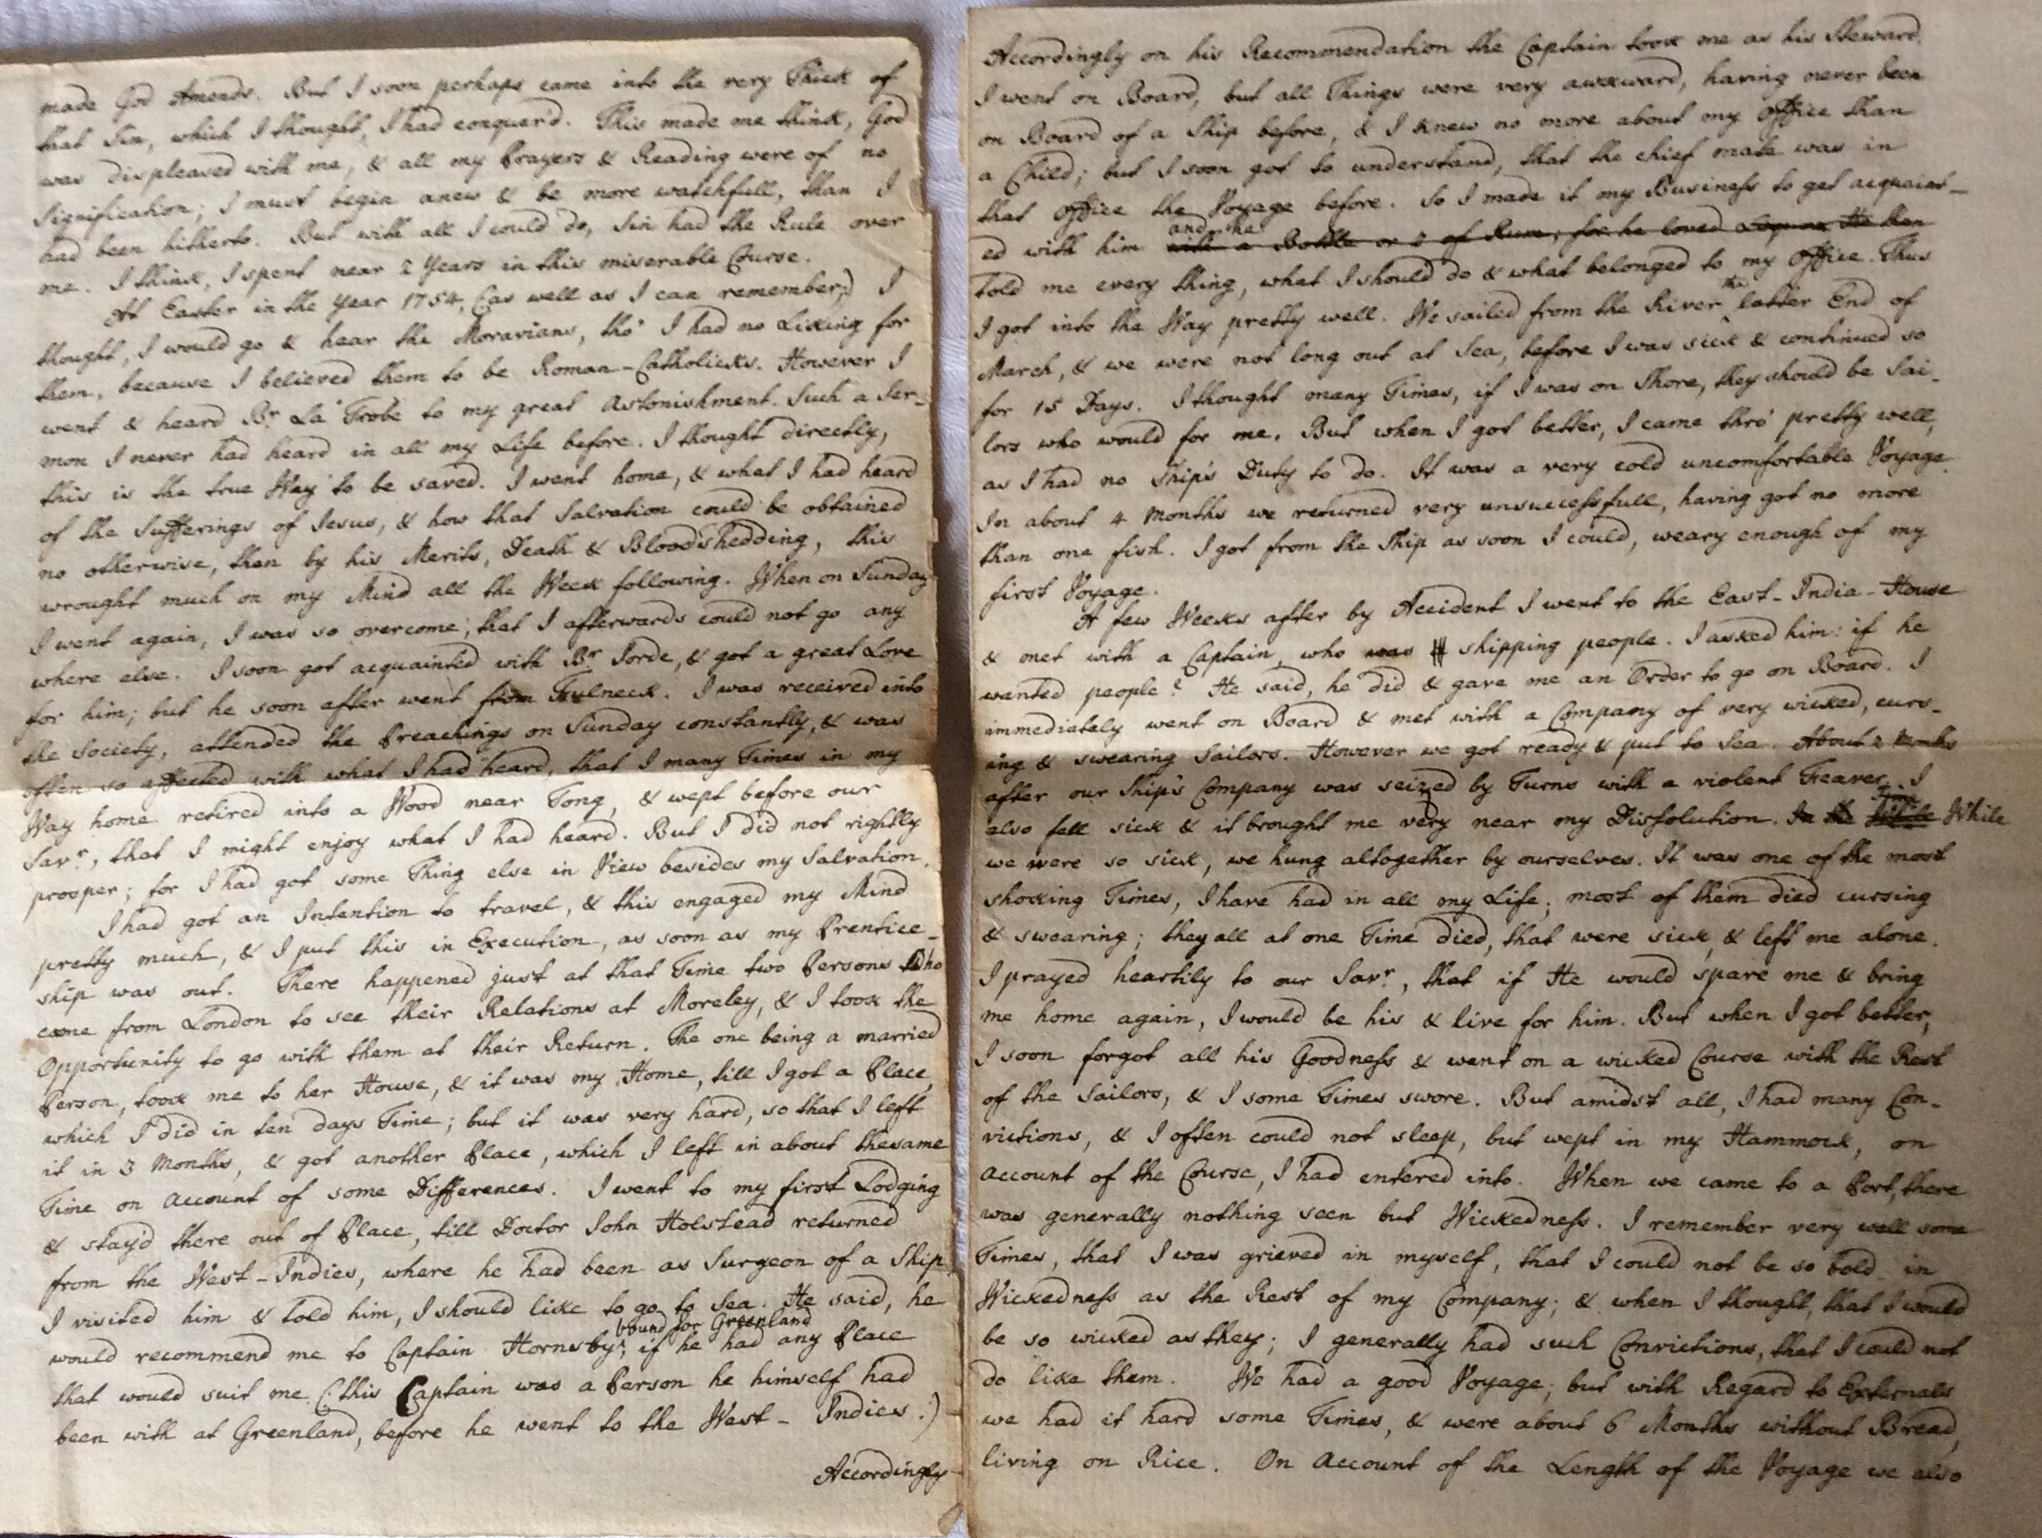 made God Amends. But I soon perhaps came into the very Thick of
that Sin, which I thought, I had conquer'd. This made me think, God
was displeased with me, & all my Prayers & Reading were of no
Signification; I must begin anew & be more watchfull, than I
had been hitherto. But with all I could do, Sin had the Rule over
me. I think, I spent near 2 Years in this miserable Course.
At Easter in the Year 1754, (as well as I can remember;) I
thought, I would go & hear the Moravians, tho' I had no Liking for
them, because I believed them to be Roman-Catholicks. However I
went & heard Br. La Trobe to my great Astonishment. Such a Ser-
mon I never had heard in all my Life before. I thought directly,
this is the true Way to be saved. I went home, & what I had heard
of the Sufferings of Jesus, & how that Salvation could be obtained
no otherwise, then by his Merits, Death & Bloodshedding, this
wrought much on my Mind all the Week following. When on Sunday
I went again, I was so overcome; that I afterwards could not go any
where else. I soon got acquainted with Br. Jorde, & got a great Love
for him; but he soon after went from Fulneck. I was received into
the Society, attended the Preachings on Sunday constantly, & was
often so affected with what I had heard, that I many Times in my
Way home retired into a Wood near Tong, & wept before our
Savr., that I might enjoy what I had heard. But I did not rightly
prosper; for I had got some Thing else in View besides my Salvation.
I had got an Intention to travel, & this engaged my Mind
pretty much, & I put this in Execution, as soon as my Prentice-
ship was out. There happened just at that Time two Persons Who
come from London to see their Relations at Moreley, & I took the
Opportunity to go with them at their Return. The one being a married
Person, took me to her House, & it was my Home, till I got a Place,
which I did in ten days Time; but it was very hard, so that I left
it in 3 Months, & got another Place, which I left in about the same
Time on Account of some Differences. I went to my first Lodging
& stay'd there out of Place, till Doctor John Holstead returned
from the West-Indies, where he had been as Surgeon of a Ship
I visited him & told him, I should like to go to Sea. He said, he
bound for Greenland
would recommend me to Captain Hornsby, if he had any Place
that would suit me (:this Captain was a Person he himself had
been with at Greenland, before he went to the West-Indies.:)
Accordingly
Accordingly on his Recommendation the Captain took me as his Steward.
I went on Board, but all Things were very awkward, having never been
on Board of a Ship before, & I knew no more about my Office than
a Child; but I soon got to understand, that the chief mate was in
that Office the Voyage before. So I made it my Business to get acquaint-
and he
ed with him with a Bottle or 2 of Rum; for he loved Liquor. He then
told me every thing, what I should do & what belonged to my Office. Thus
I got into the Way pretty well. We sailed from the River the latter End of
March, & we were not long out at Sea, before I was sick & continued so
for 15 Days. I thought many Times, if I was on Shore, they should be Sai-
lors who would for me. But when I got better, I came thro' pretty well,
as I had no Ship's Duty to do. It was a very cold uncomfortable Voyage.
In about 4 Months we returned very unsuccessfull, having got no more
than one fish. I got from the Ship as soon I could, weary enough of my
first Voyage.
A few Weeks after by Accident I went to the East-India-House
& met with a Captain, who was shipping people. I asked him: if he
wanted people? He said, he did & gave me an Order to go on Board. I
immediately went on Board & met with a Company of very wicked, curs-
ing & swearing Sailors. However we got ready & put to Sea. About 2 Months
after our Ship's Company was seized by Turns with a violent Feaver. I
also fell sick & it brought me very near my Dissolution. In the While
we were so sick, we hung altogether by ourselves. It was one of the most
shocking Times, I have had in all my Life; most of them died cursing
& swearing; they all at one Time died, that were sick, & left me alone.
I prayed heartily to our Savr., that if He would spare me & bring
me home again, I would be his & live for him. But when I got better,
I soon forgot all his Goodness & went on a wicked Course with the Rest
of the Sailors, & I some Times swore. But amidst all, I had many Con-
victions, & I often could not sleep, but wept in my Hammock, on
Account of the Course, I had entered into. When we came to a Port, there
was generally nothing seen but Wickedness. I remember very well some
Times, that I was grieved in myself, that I could not be so bold in
Wickedness as the Rest of my Company; & when I thought, that I would
be so wicked as they; I generally had such Convictions, that I could not
do like them. We had a good Voyage; but with Regard to Externals
we had it hard some Times, & were about 6 Months without Bread,
living on Rice. On Account of the Length of the Voyage we also